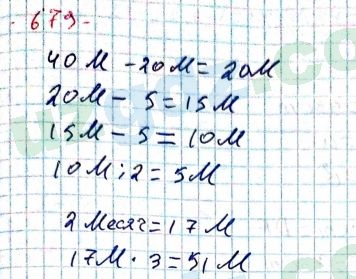 679.
40 м - 20 м = 20 м
20 м - 5 = 15 м
15 м - 5 = 10 м
10 м : 2 = 5 м
2 месяч = 17 м
17 м . 3 = 51 м